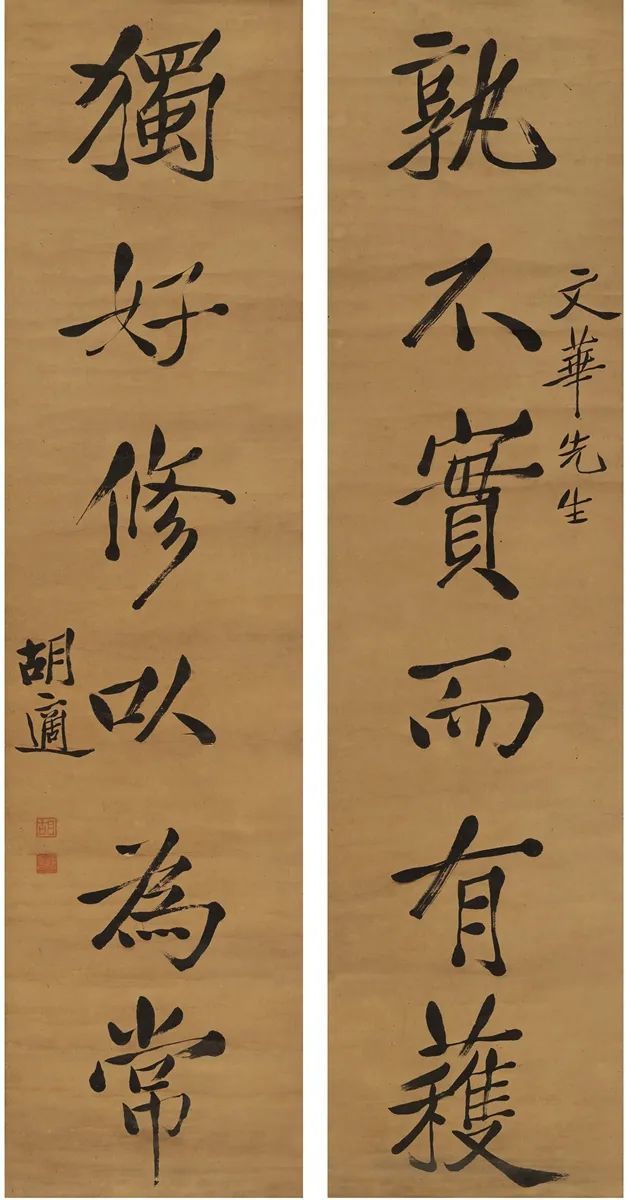 文華先生
孰不實而有穫
獨好修以為常
胡適
胡